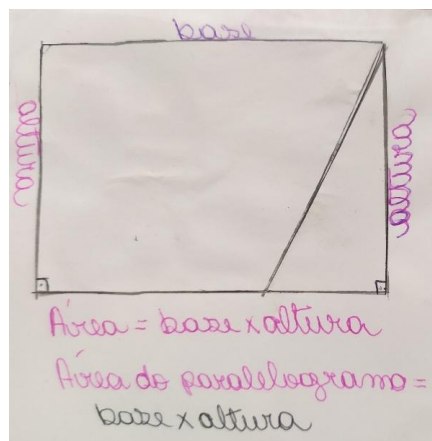 base
altura
altura
Área = base x altura
Área do paralelogramo =
base x altura